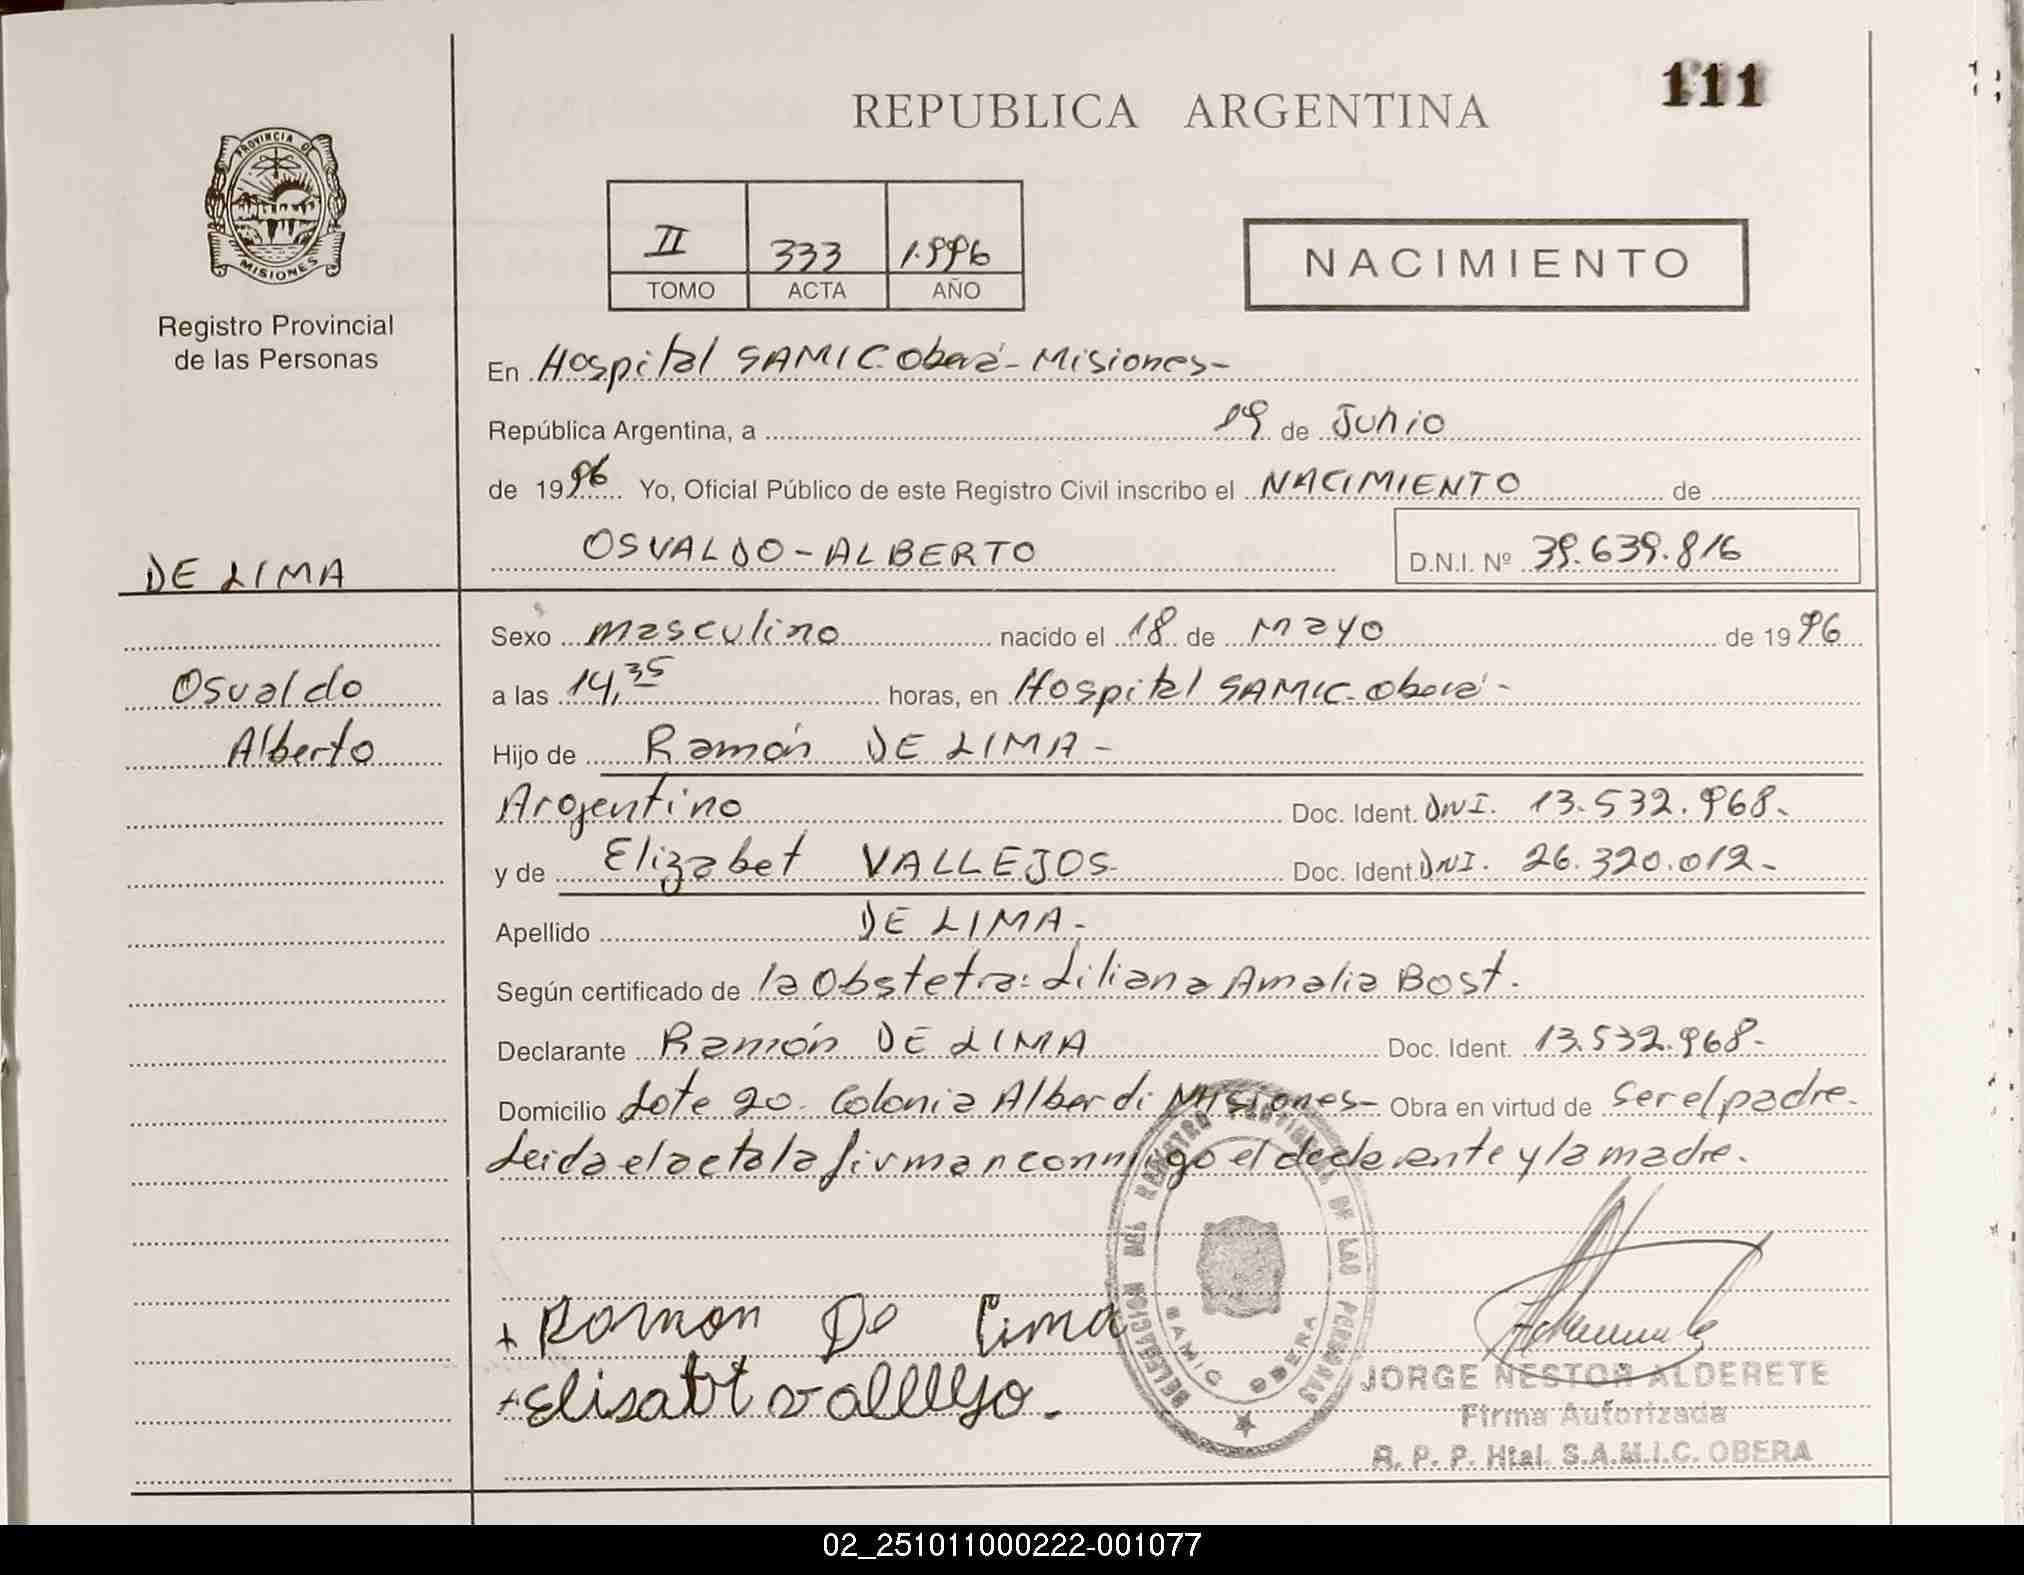 111
REPUBLICA ARGENTINA
PROVINCIA DE
MISIONES
Registro Provincial
de las Personas
II 333 1.996
TOMO ACTA AÑO
NACIMIENTO
En Hospital SAMIC Oberá - Misiones -
República Argentina, a 19 de Junio
de 1996 Yo, Oficial Público de este Registro Civil inscribo el NACIMIENTO de
OSVALDO - ALBERTO D.N.I. Nº 39.639.816
DE LIMA
Osvaldo
Alberto
Sexo masculino nacido el 18 de Mayo de 1996
a las 14,35 horas, en Hospital SAMIC - Oberá -
Hijo de Ramón DE LIMA -
Argentino Doc. Ident. DNI. 13.532.968.
y de Elizabet VALLEJOS Doc. Ident. DNI. 26.320.012 -
Apellido DE LIMA -
Según certificado de la Obstetra: Liliana Amalia Bost.
Declarante Ramón DE LIMA Doc. Ident. 13.532.968 -
Domicilio Lote 20. Colonia Alberdi Misiones - Obra en virtud de ser el padre.
Leida el acta la firman conmigo el declarante y la madre.
DELEGACION DEL REGISTRO PROVINCIAL DE LAS PERSONAS
SAMIC OBERA
+ Ramon De Lima
JORGE NESTOR ALDERETE
Firma Autorizada
R. P. P. Htal. S.A.M.I.C. OBERA
02_251011000222-001077